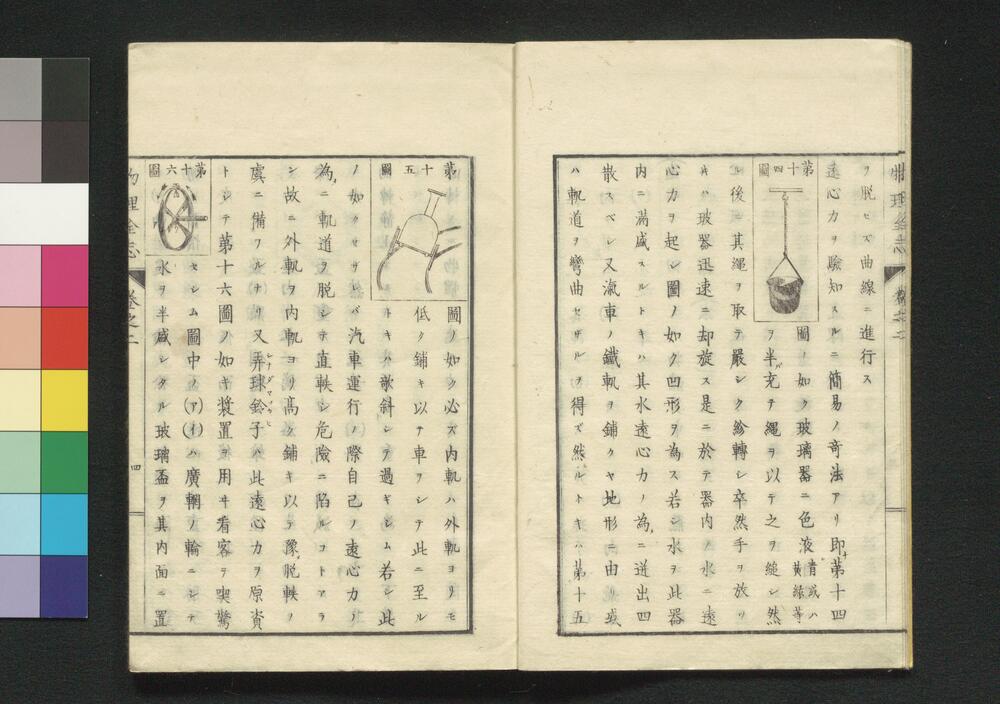 ヲ脱セズ曲線ニ進行ス
遠心力ヲ驗知スルニ簡易ノ奇法アリ即チ第十四
第十四圖
圖ノ如ク玻璃器ニ色液青或ハ黄綠等
ヲ半バ充テ繩ヲ以テ之ヲ縋シ然
ル後ニ其繩ヲ取テ嚴シク紾轉シ卒然手ヲ放ツ
キハ玻器迅速ニ却旋ス是ニ於テ器内ノ水ニ遠
心力ヲ起シ圖ノ如ク凹形ヲ為ス若シ水ヲ此器
内ニ滿盛スルトキハ其水遠心力ノ為ニ迸出四
散スベシ又滊車ノ鐵軌ヲ鋪クヤ地形ニ由リ或
ハ軌道ヲ彎曲セザルヲ得ズ然ルトキハ第十五
第十五圖
圖ノ如ク必ズ内軌ハ外軌ヨリモ
低ク鋪キ以テ車ヲシテ此ニ至ル
トキハ欹斜シテ過ギシム若シ此
ノ如クセザレバ汽車運行ノ際自己ノ遠心力ノ
為ニ軌道ヲ脱シテ直軼シ危險ニ陷ルコトアラ
ン故ニ外軌ヲ内軌ヨリ高ク鋪キ以テ豫メ脱軼ノ
虞ニ備フルナリ又弄球鈴子ハ此遠心力ヲ原資
トシテ第十六圖ノ如キ裝置ヲ用ヰ看客ヲ喫驚
第十六圖
セシム圖中ノ(ア)(イ)ハ廣輞ノ輪ニシテ
水ヲ半盛シタル玻璃盃ヲ其内面ニ置
物理全志
卷之二
四